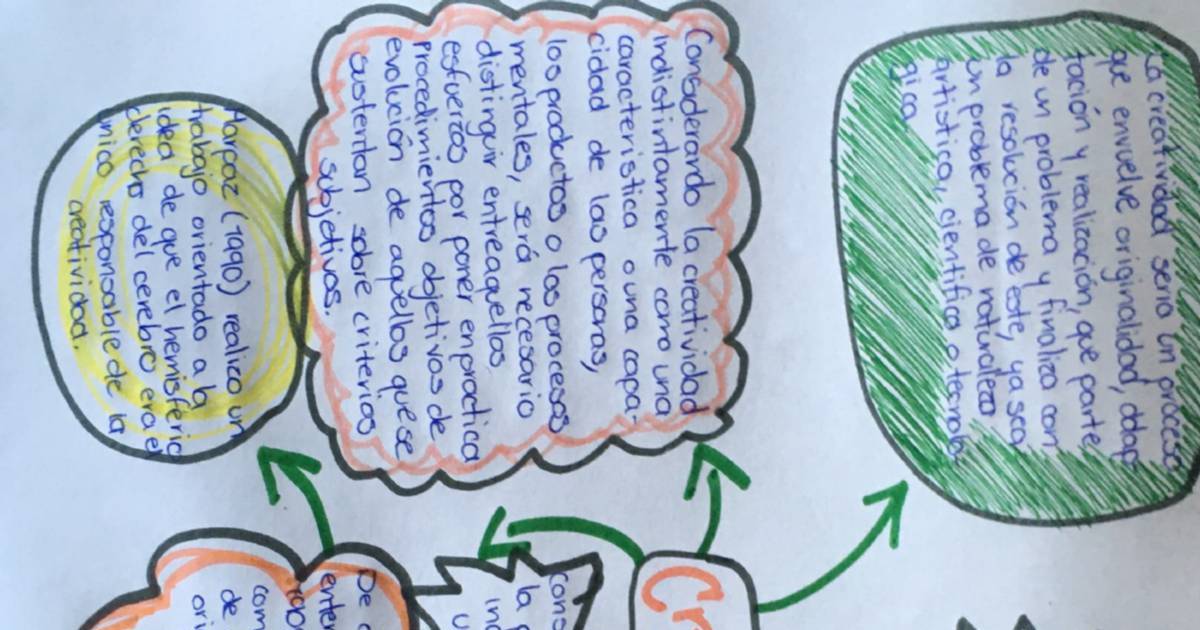 La creatividad seria un proceso
que envuelve originalidad, adap
tación y realización, que parte
de un problema y finaliza con
la resolución de este, ya sea
un problema de naturaleza
artistica, cientifica o tecnoló
gica.
Considerando la creatividad
indistintamente como una
caracteristica o una capa-
cidad de las personas,
los productos o los procesos
mentales, será necesario
distinguir entre aquellos
esfuerzos por poner en practica
procedimientos objetivos de
evolución de aquellos que se
sustentan sobre criterios
subjetivos.
Harpaz (1990) realico un
trabajo orientado a la
idea de que el hemisferio
derecho del cerebro era el
unico responsable de la
creatividad.
Cr
Cons
la p
inc
u
De
enter
com
de
ori